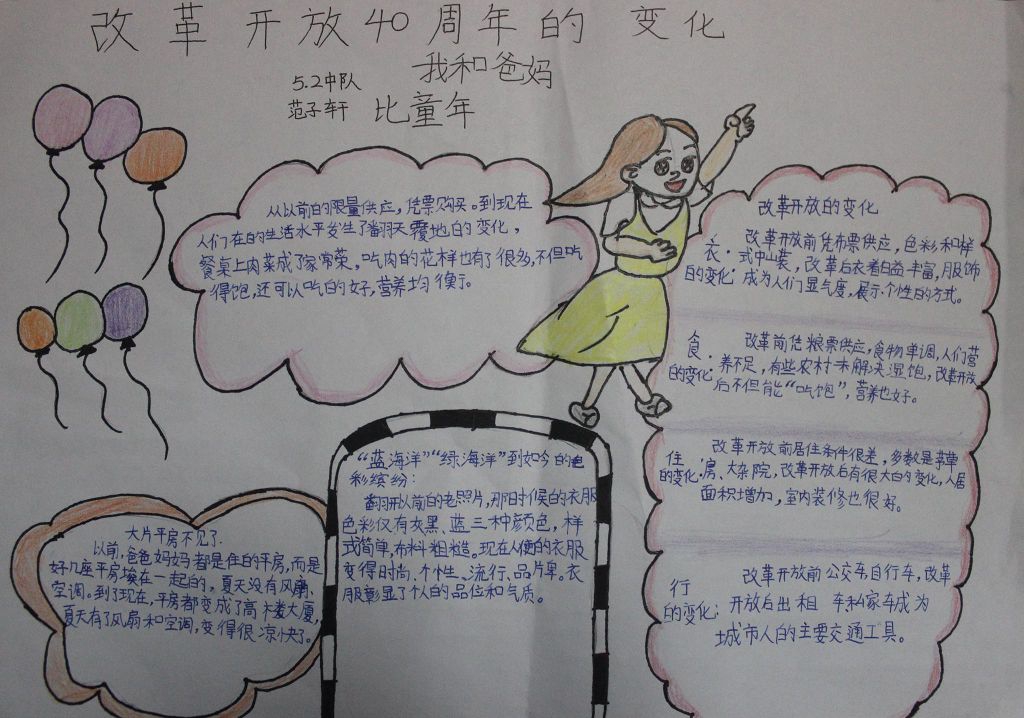 改革开放40周年的变化
我和爸妈
比童年
5.2中队
范子轩
从以前的限量供应，凭票购买。到现在
人们在的生活水平发生了翻天覆地的变化，
餐桌上肉菜成了家常荣，吃肉的花样也有了很多，不但吃
得饱，还可以吃的好，营养均衡。
改革开放的变化
衣. 改革开放前凭布票供应，色彩和样
的变化: 式中山装，改革后衣着日益丰富，服饰
成为人们显气度，展示个性的方式。
食. 改革前凭粮票供应，食物单调，人们营
的变化: 养不足，有些农村未解决温饱，改革开放
后不但能“吃饱”，营养也好。
住 改革开放前居住条件很差，多数是草
的变化: 房、大杂院，改革开放后有很大的变化，人居
面积增加，室内装修也很好。
行 改革开放前公交车自行车，改革
的变化: 开放后出租 车私家车成为
城市人的主要交通工具。
“蓝海洋”“绿海洋”到如今的色
彩缤纷:
翻开以前的老照片，那时候的衣服
色彩仅有灰黑、蓝三种颜色，样
式简单，布料粗糙。现在人们的衣服
变得时尚、个性、流行、品片卑。衣
服彰显了个人的品位和气质。
大片平房不见了.
以前，爸爸妈妈都是住的平房，而是
好几座平房埃在一起的。夏天没有风扇、
空调。到了现在，平房都变成了高楼大厦，
夏天有了风扇和空调，变得很凉快了。